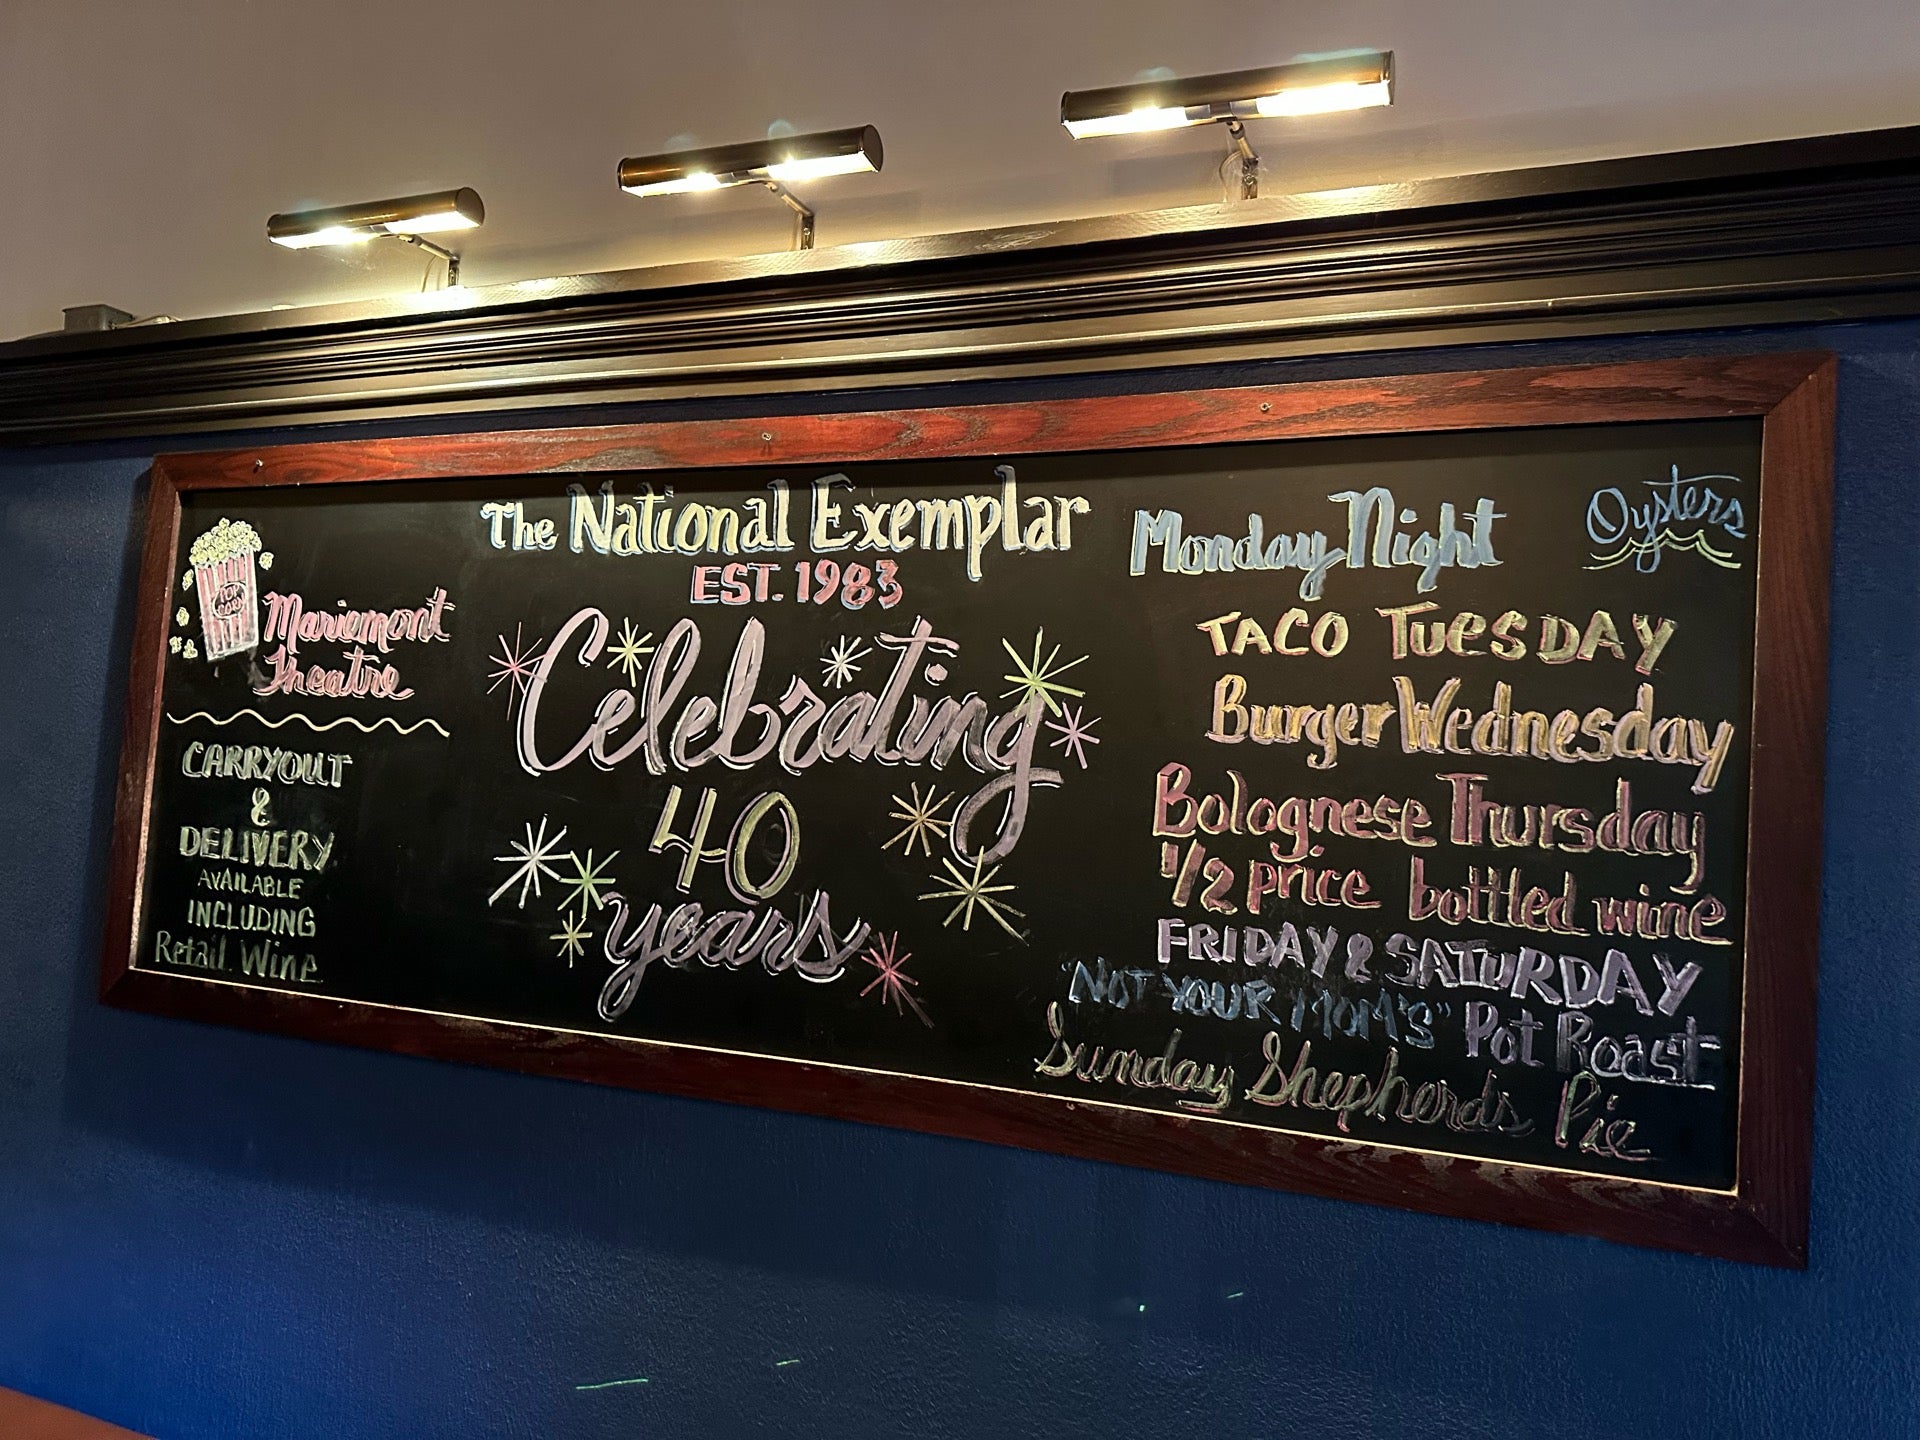 POP
CORN
Mariemont
Theatre
CARRYOUT
&
DELIVERY
AVAILABLE
INCLUDING
Retail Wine
The National Exemplar
EST. 1983
Celebrating
40
years
Monday Night Oysters
TACO TUESDAY
Burger Wednesday
Bolognese Thursday
1/2 price bottled wine
FRIDAY & SATURDAY
"NOT YOUR MOM'S" Pot Roast
Sunday Shepherds Pie